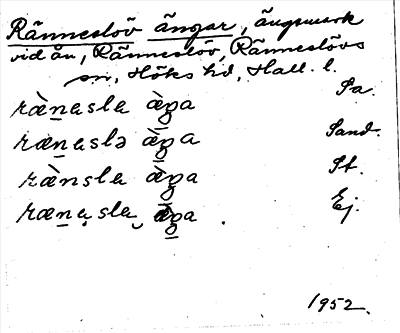 Ränneslöv ängar, ängsmark
vid ån, Ränneslöv, Ränneslövs
sn, Höks hd, Hall. l.
ræ̀nasla æ̀ga Pa.
rænaslə æ̀ga Sand.
ræ̀nsla æ̀ga St.
rænasla æga . Ej.
1952.